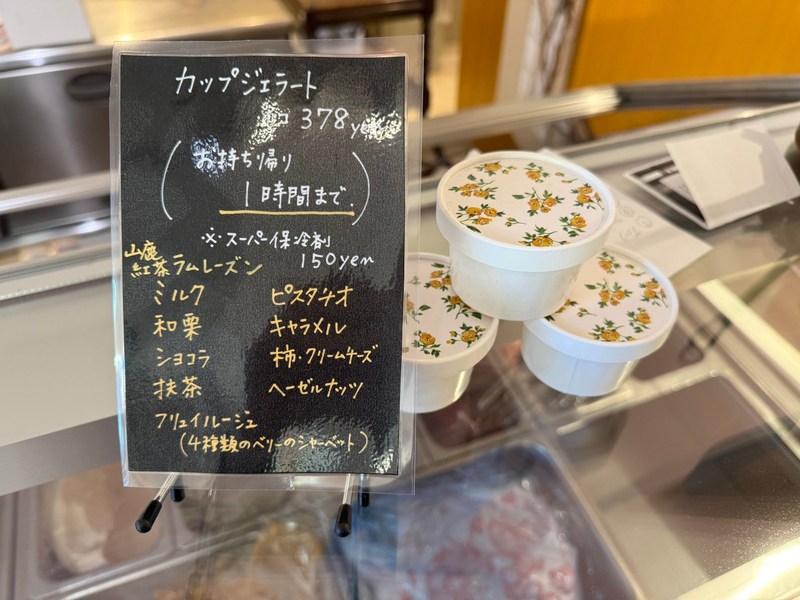 カップジェラート
1コ 378yen
(お持ち帰り
1時間まで.)
※スーパー保冷剤
150yen
山鹿
紅茶ラムレーズン
ミルク ピスタチオ
和栗 キャラメル
ショコラ 柿・クリームチーズ
抹茶 ヘーゼルナッツ
フリュイルージュ
(4種類のベリーのシャーベット)